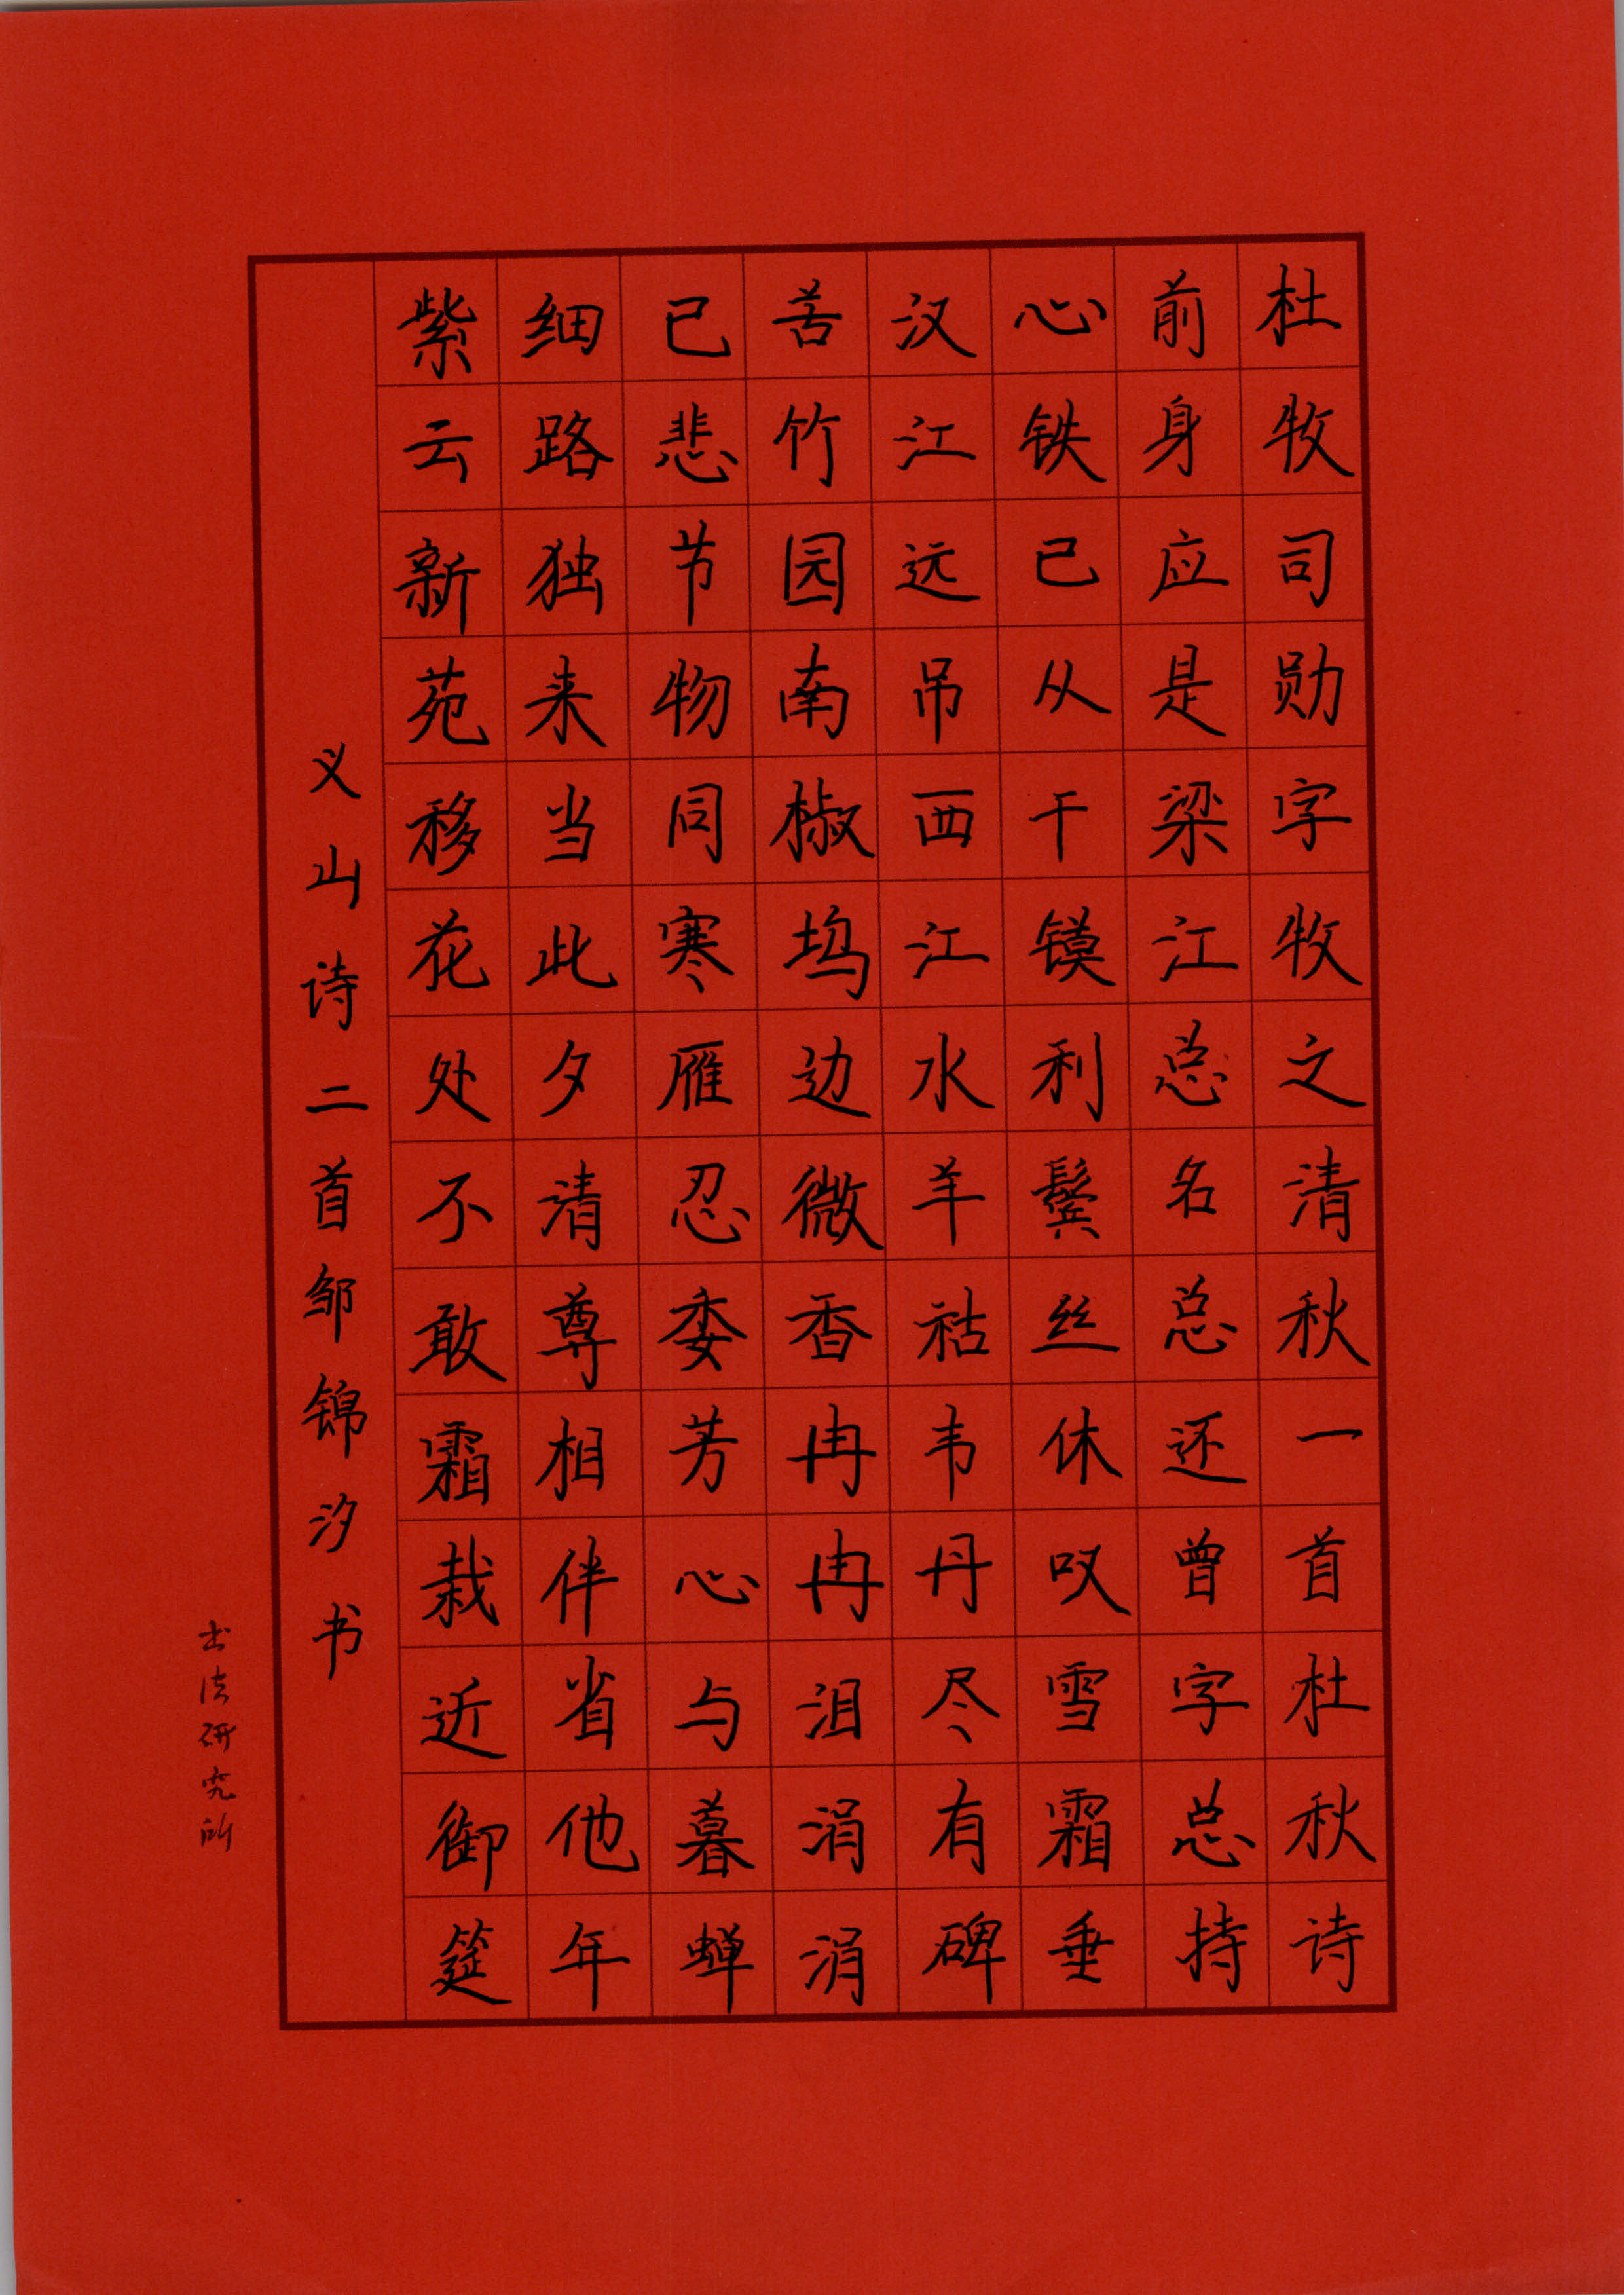 杜牧司勋字牧之清秋一首杜秋诗
前身应是梁江总名总还曾字总持
心铁已从干镆利鬓丝休叹雪霜垂
汉江远吊西江水羊祜韦丹尽有碑
苦竹园南椒坞边微香冉冉泪涓涓
已悲节物同寒雁忍委芳心与暮蝉
细路独来当此夕清尊相伴省他年
紫云新苑移花处不敢霜栽近御筵
义山诗二首邹锦汐书
书法研究所